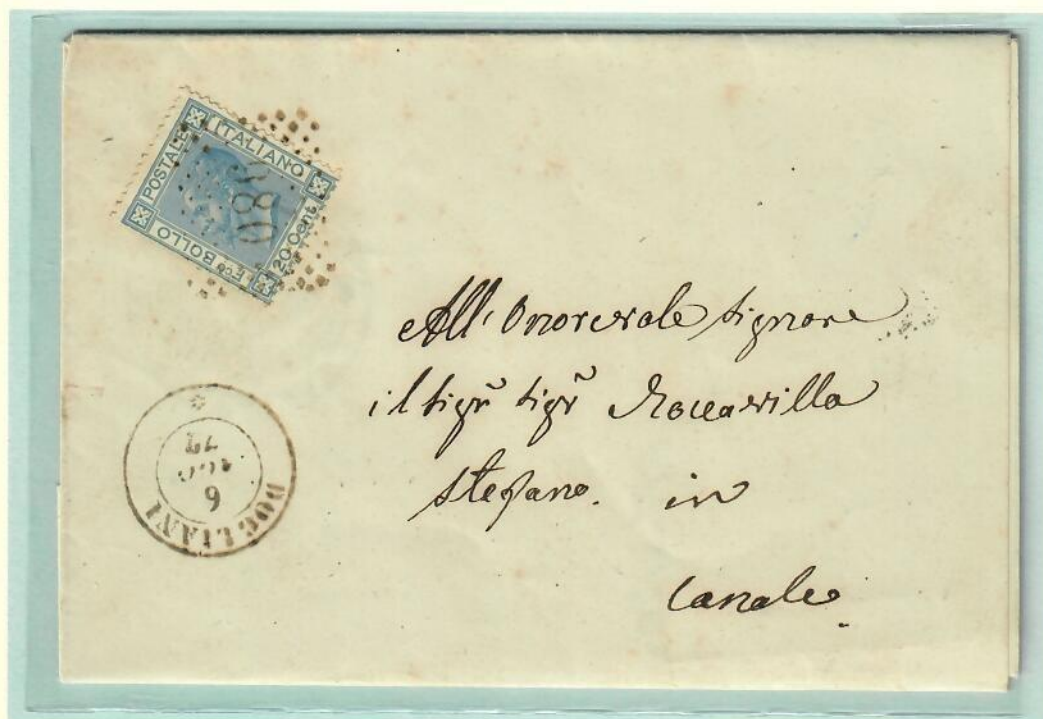 POSTALE
ITALIANO
20 Cent
F.co BOLLO
DOGLIANI
6
AGO
All' Onorevole Signore
il Sigr̃ Sigr̃ Roccavilla
Stefano. in
Canale.